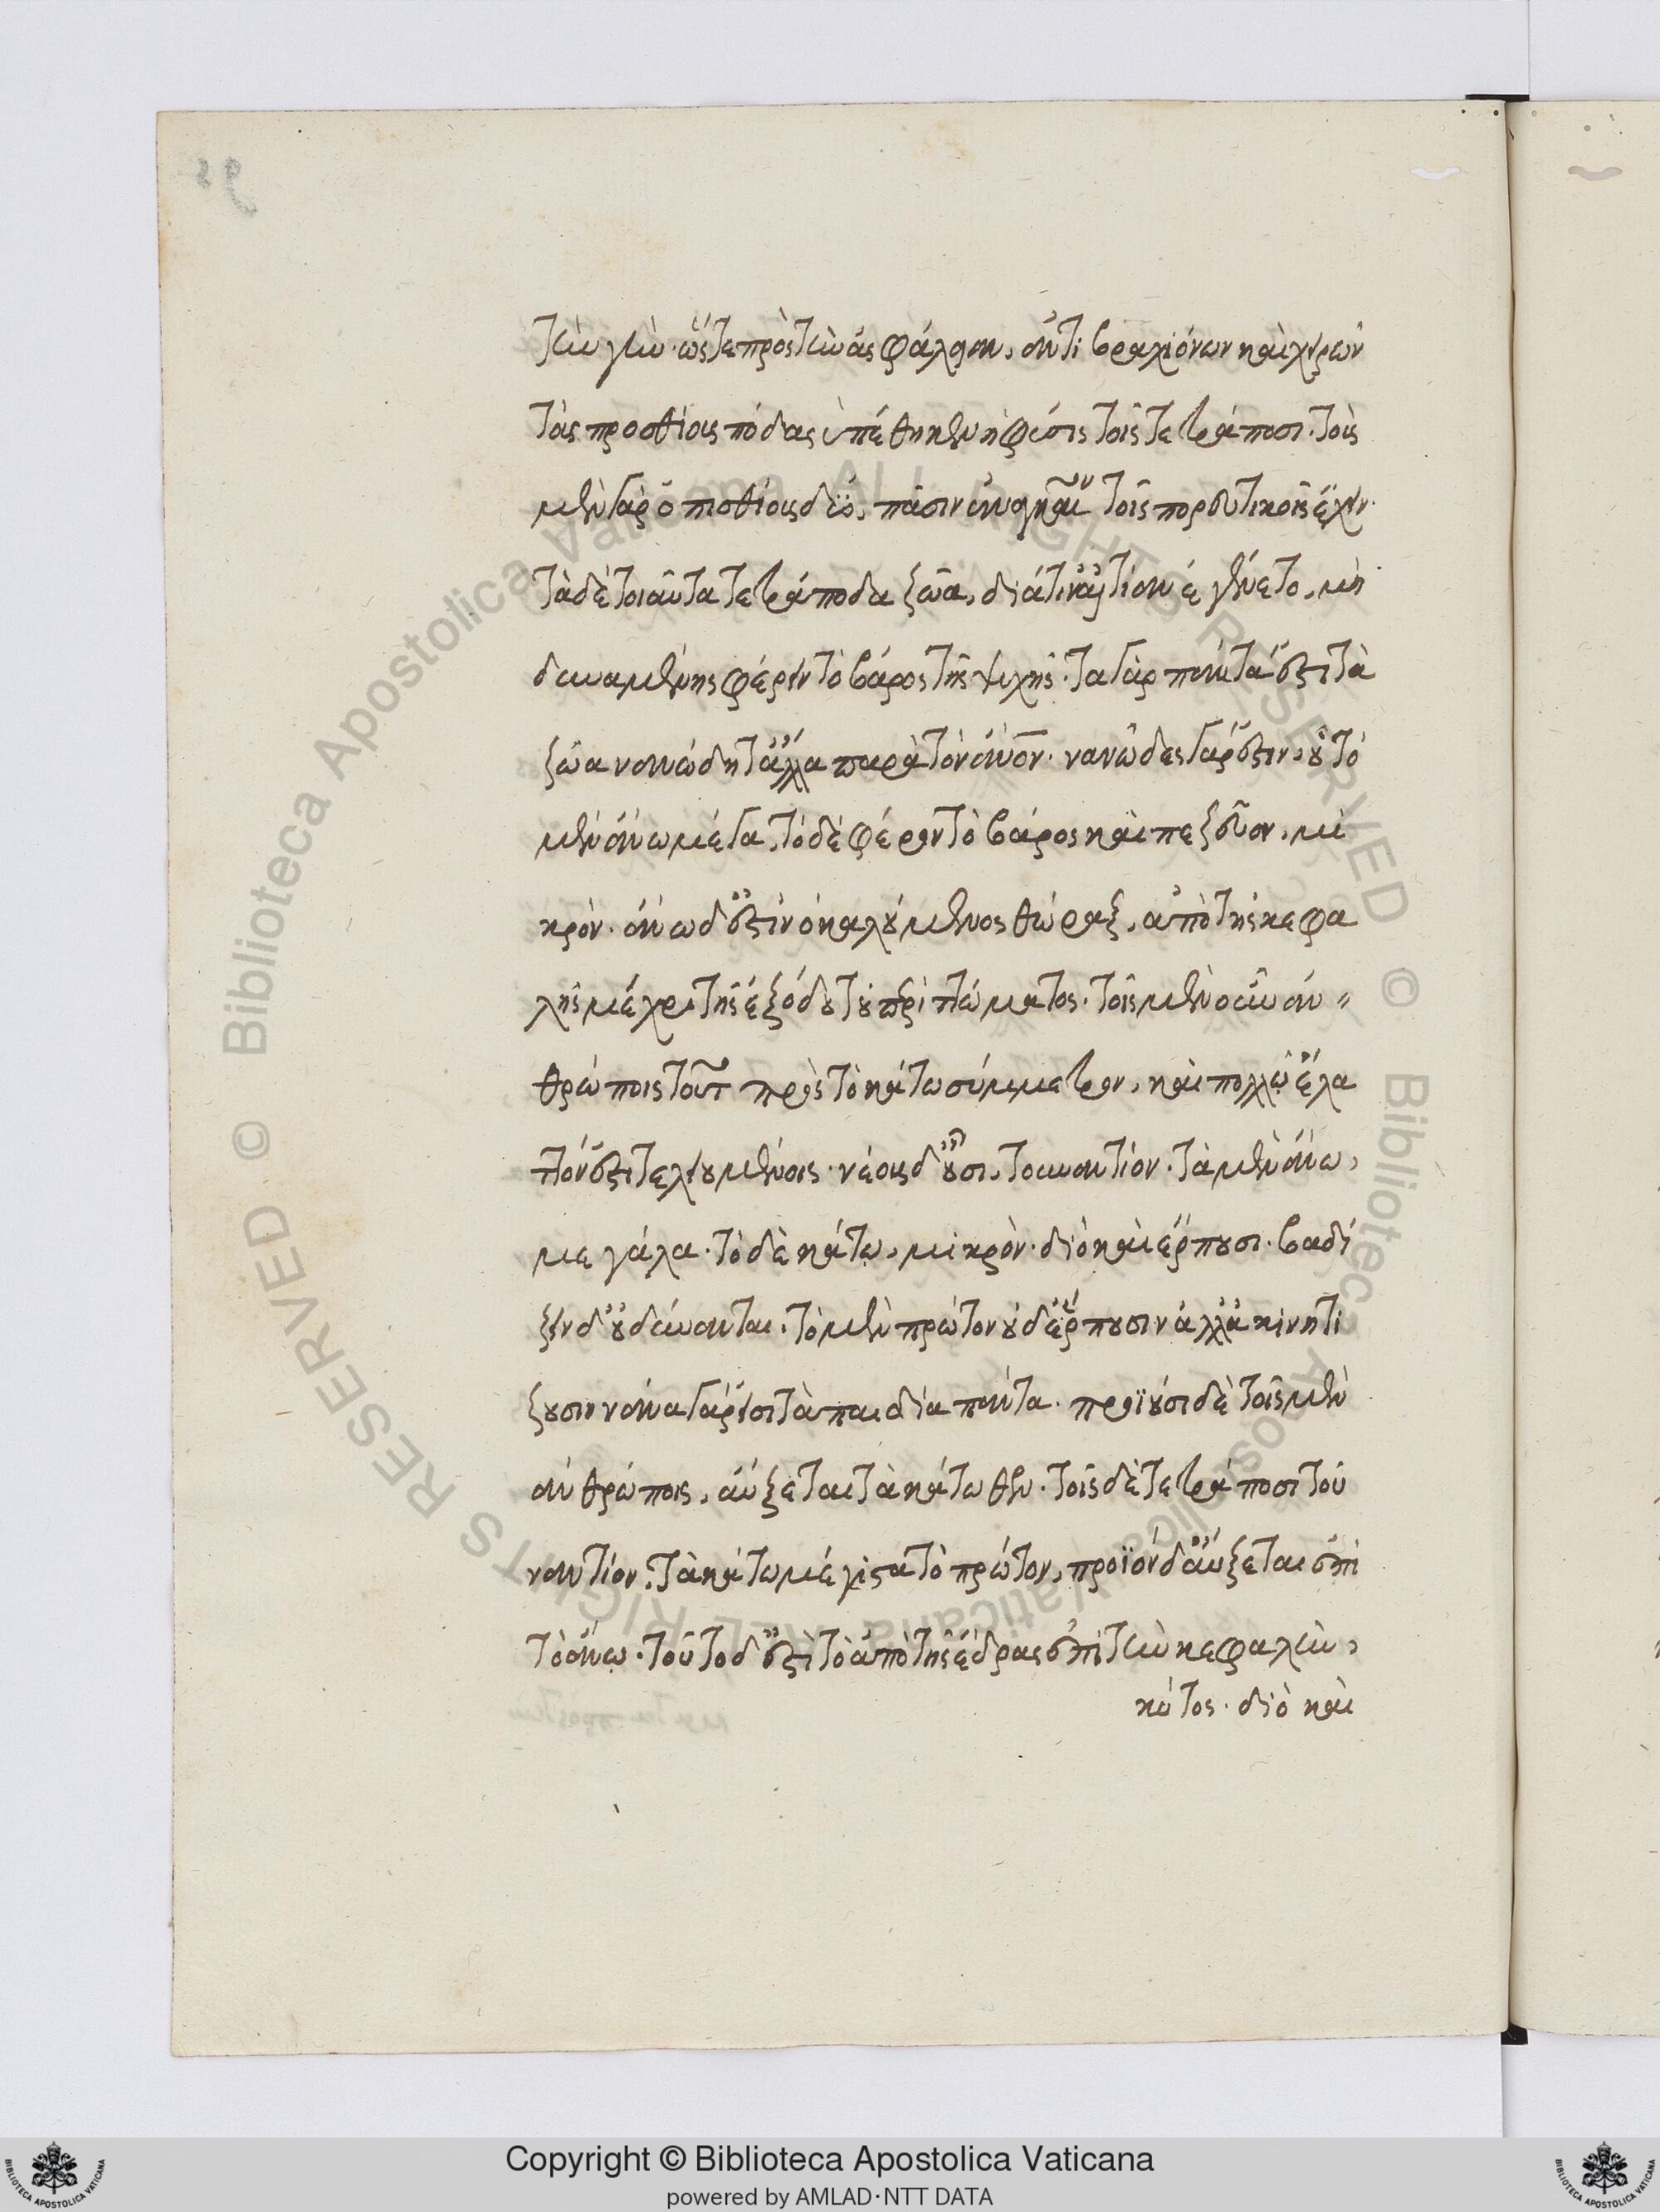 τὴν γῆν· ὥστε πρὸς τὴν ἀσφάλειαν, ἀντὶ βραχιόνων καὶ χειρῶν
τοὺς προσθίους πόδας ὑπέθηκεν ἡ φύσις τοῖς τετράποσι. τοὺς
μὲν γὰρ ὀπισθίους δύο, πᾶσιν ἀναγκαῖον τοῖς πορευτικοῖς ἔχειν.
τὰ δὲ τοιαῦτα τετράποδα ζῶα, διὰ τὴν αἰτίαν ἐγένετο, μὴ
δυναμένης φέρειν τὸ βάρος τῆς ψυχῆς. τὰ γὰρ πάντα ἐστὶ τὰ
ζῶα νανώδη τἄλλα παρὰ τὸν ἄνον. νανῶδες γάρ ἐστιν, οὗ τὸ
μὲν ἄνω μέγα, τὸ δὲ φέρον τὸ βάρος καὶ πεζεῦον, μι
κρόν. ἄνω δ' ἐστὶν ὁ καλούμενος θώραξ, ἀπὸ τῆς κεφα
λῆς μέχρι τῆς ἐξόδου τοῦ περιττώματος. τοῖς μὲν οὖν ἀν
θρώποις τοῦτ πρὸς τὸ κάτω σύμμετρον, καὶ πολλῷ ἔλα
ττόν ἐστι τελειουμένοις. νέοις δ' οὖσι, τοὐναντίον. τὰ μὲν ἄνω,
μεγάλα. τὸ δὲ κάτω, μικρόν. διὸ καὶ ἕρπουσι. βαδί
ζειν δ' οὐ δύνανται. τὸ μὲν πρῶτον οὐδ' ἕρπουσιν ἀλλὰ κινητί
ζουσιν νάνα γάρ εἰσι τὰ παιδία πάντα. προϊοῦσι δὲ τοῖς μὲν
ἀνθρώποις, αὔξεται τὰ κάτωθεν. τοῖς δὲ τετράποσι τοὐ
ναντίον. τὰ κάτω μέγιστα τὸ πρῶτον, προϊὸν δ' αὔξεται ἐπὶ
τὸ ἄνω. τοῦτο δ' ἐστὶ τὸ ἀπὸ τῆς ἕδρας ἐπὶ τὴν κεφαλὴν,
κύτος. διὸ καὶ
Copyright © Biblioteca Apostolica Vaticana
powered by AMLAD·NTT DATA